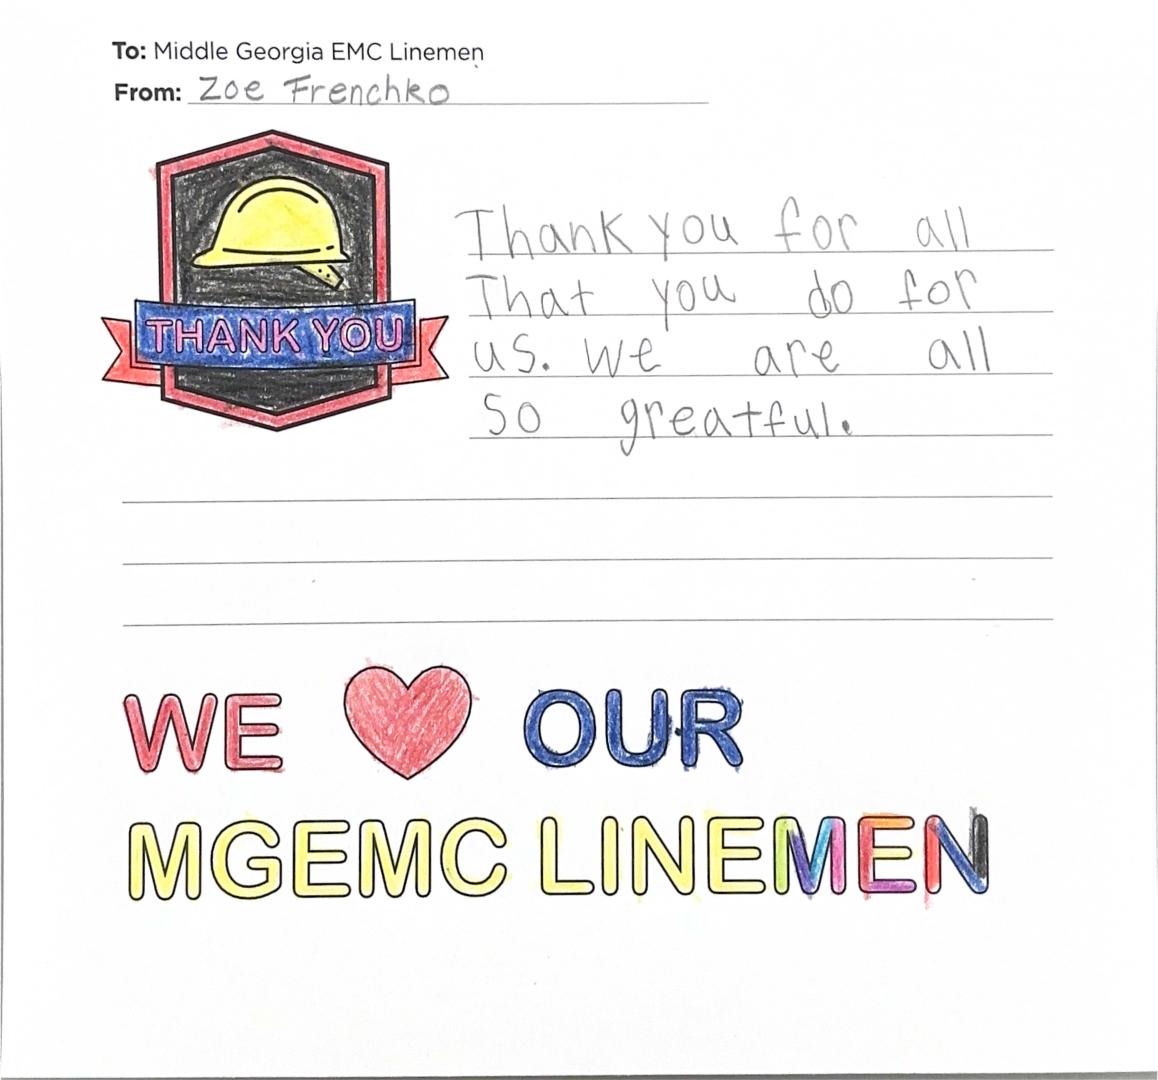 To: Middle Georgia EMC Linemen
From: Zoe Frenchko
THANK YOU
Thank you for all
That you do for
us. We are all
So greatful.
WE OUR
MGEMC LINEMEN